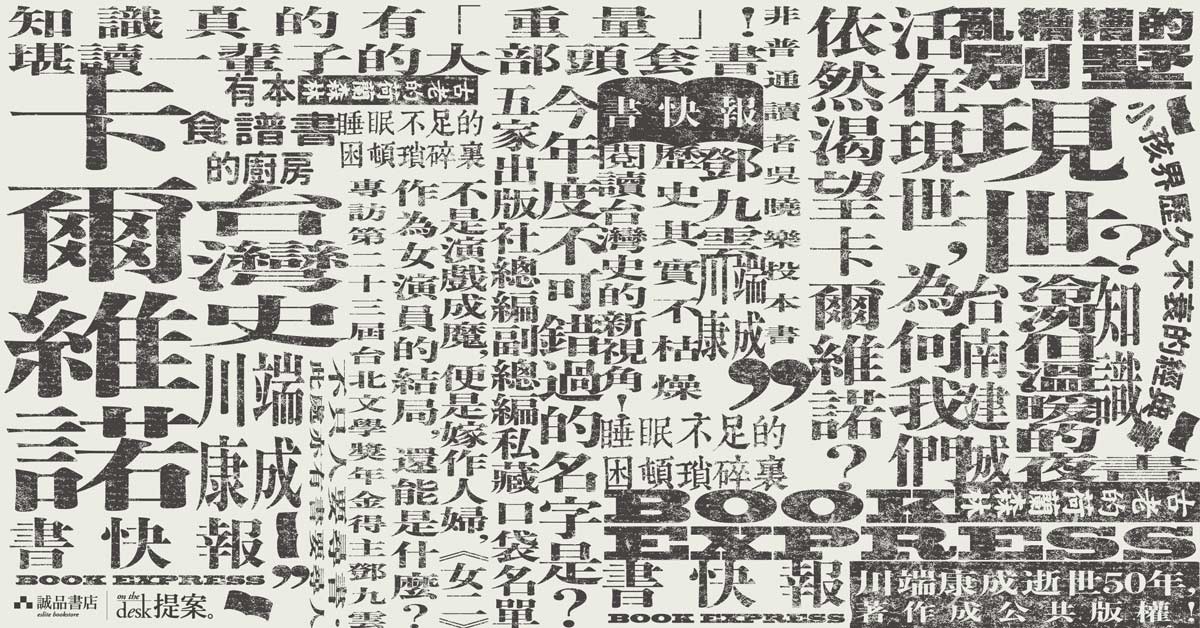 知識真的有「重量」!
堪讀一輩子的大部頭套書
卡爾維諾
有本
食譜書
的廚房
古老的荷蘭森林
睡眠不足的
困頓瑣碎裏
台灣史
川端
康成
專訪第二十三屆台北文學獎年金得主鄧九雲
作為女演員的結局,還能是什麼?
不是演戲成魔,便是嫁作人婦,《女二》
五家出版社總編副總編私藏口袋名單
今年度不可錯過的名字是?
書快報
閱讀台灣史的新視角!
歷史其實不枯燥
鄧九雲
川端
康成
非普通讀者吳曉樂投本書
睡眠不足的
困頓瑣碎裏
依然渴望卡爾維諾?
活在現世,為何我們
亂糟糟的
別墅
現世?
台南建城
滾燙但溫暖的夜
知識
小孩界歷久不衰的經典
BOOK
古老的荷蘭森林
EXPRESS
書快報
BOOK EXPRESS
川端康成逝世50年,
著作成公共版權!
書快報
BOOK EXPRESS
誠品書店
eslite bookstore
on the
desk提案。